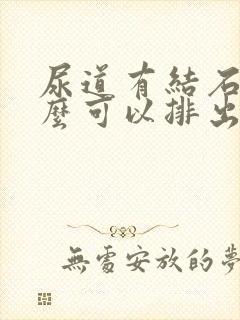 尿道有結石
麼可以排出
無處安放的夢